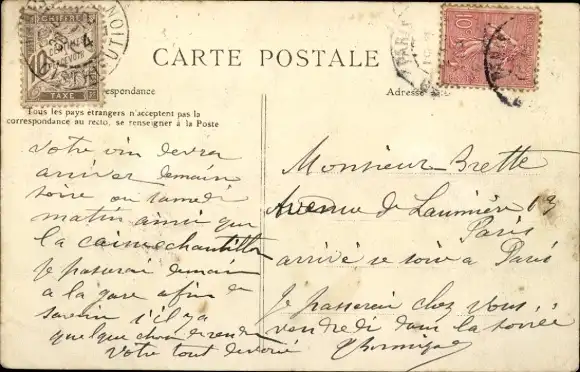 CARTE POSTALE
Correspondance
Adresse
Tous les pays étrangers n'acceptent pas la
correspondance au recto, se renseigner à la Poste
CHIFFRE
10
TAXE
10
PARIS
Votre vin devra
arriver demain
soire ou samedi
matin ainsi que
la caisse echantillon
Je passerai demain
a la gare afin de
savoir s'il y a
quelque chose
Votre tout devoué
Monsieur Brette
Avenue de Laumière
Paris
arrivé se soir a Paris
Je passerai chez vous
vendredi dans la soirée